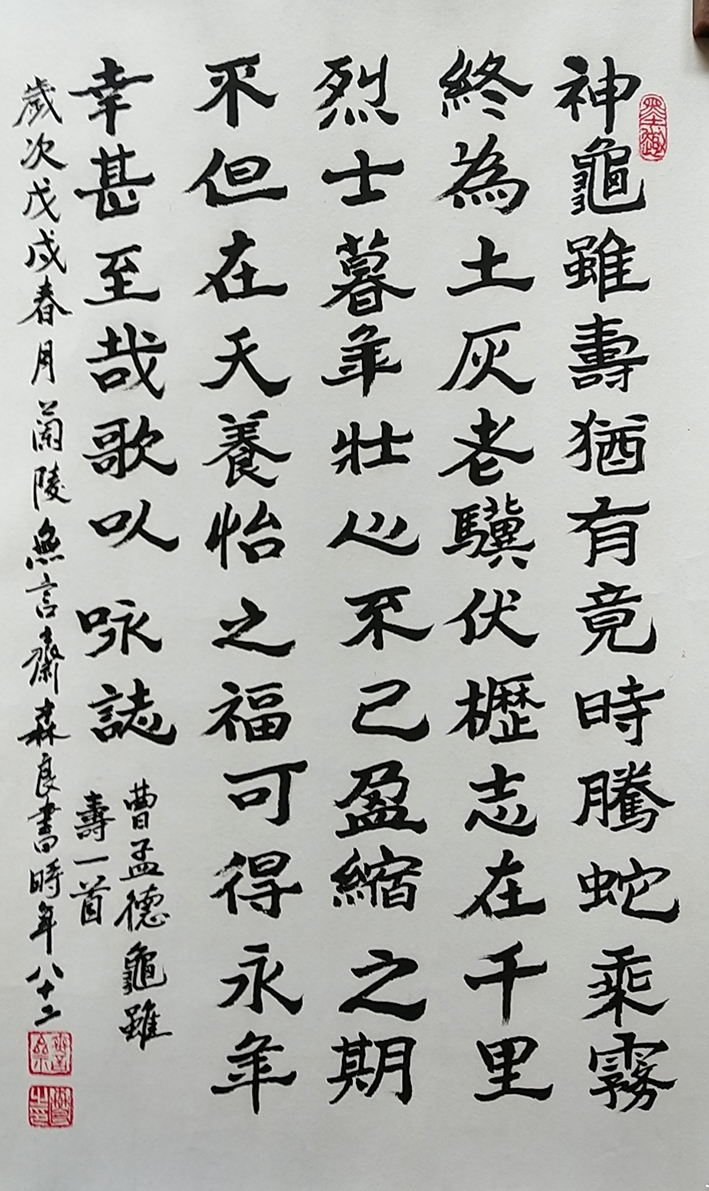 神龜雖壽猶有竟時騰蛇乘霧
終為土灰老驥伏櫪志在千里
烈士暮年壯心不已盈縮之期
不但在天養怡之福可得永年
幸甚至哉歌以咏誌
曹孟德龜雖
壽一首
歲次戊戌春月蘭陵無言齋森良書時年八十二